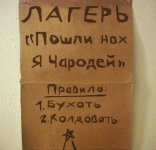 ЛАГЕРЬ
«Пошли нах
Я Чародей»
Правила:
1. Бухать
2. Колдовать